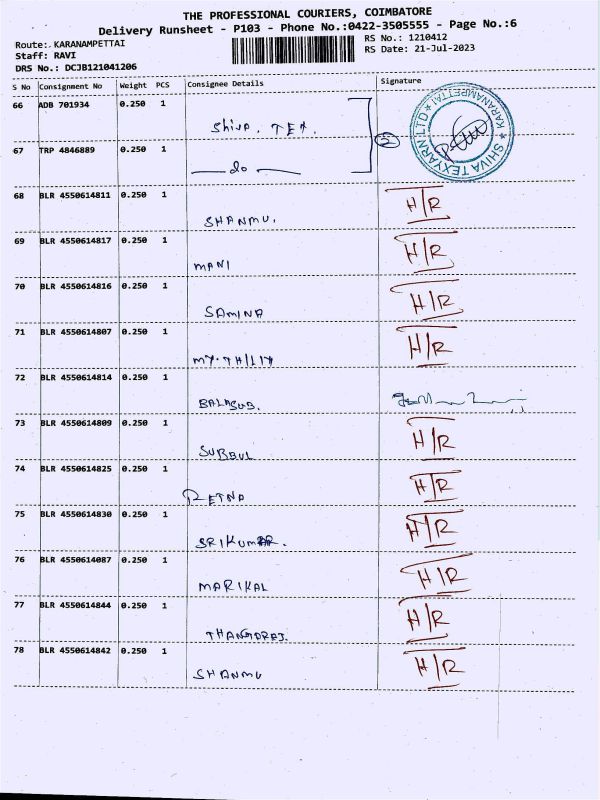 THE PROFESSIONAL COURIERS, COIMBATORE
Delivery Runsheet - P103 - Phone No.:0422-3505555 - Page No.:6
Route:. KARANAMPETTAI
RS No.: 1210412
Staff: RAVI
RS Date: 21-Jul-2023
DRS No.: DCJB121041206
S No Consignment No Weight PCS Consignee Details Signature
66 ADB 701934 0.250 1
Shiva. TEX.
2
SHIVA TEXYARN LTD ★ KARANAMPETTAI ★
67 TRP 4846889 0.250 1
do
68 BLR 4550614811 0.250 1
SHANMU. H/R
69 BLR 4550614817 0.250 1
MANI H/R
70 BLR 4550614816 0.250 1
SAMINA H/R
71 BLR 4550614807 0.250 1
H/R
72 BLR 4550614814 0.250 1
BALASUB.
73 BLR 4550614809 0.250 1
SUBBUL H/R
74 BLR 4550614825 0.250 1
RETNA H/R
75 BLR 4550614830 0.250 1
SRIKUMAR. H/R
76 BLR 4550614087 0.250 1
MARIKAL H/R
77 BLR 4550614844 0.250 1
THANGARAJ. H/R
78 BLR 4550614842 0.250 1
SHANMU H/R